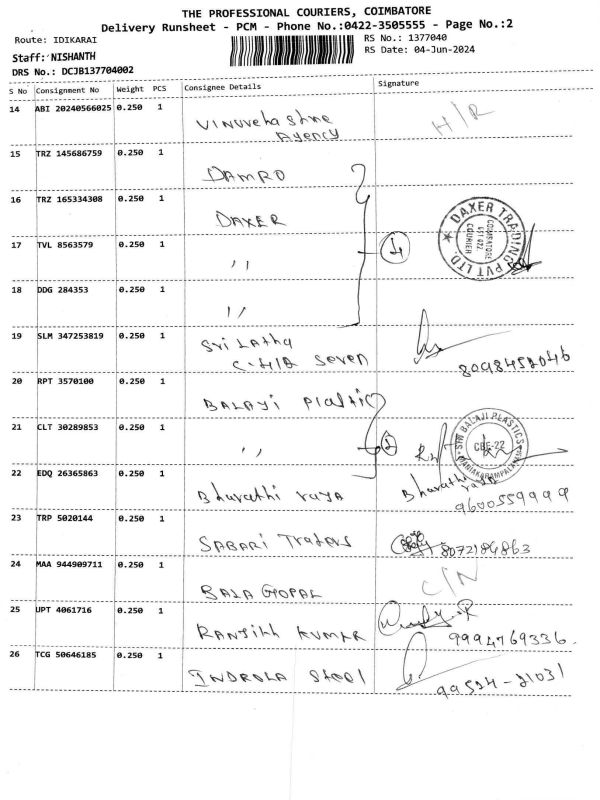 THE PROFESSIONAL COURIERS, COIMBATORE
Delivery Runsheet - PCM - Phone No.:0422-3505555 - Page No.:2
Route: IDIKARAI
RS No.: 1377040
Staff: NISHANTH
RS Date: 04-Jun-2024
DRS No.: DCJB137704002
S No Consignment No Weight PCS Consignee Details Signature
14 ABI 20240566025 0.250 1 H/R
Agency
15 TRZ 145686759 0.250 1 DAMRO
16 TRZ 165334308 0.250 1 DAXER
DAXER TRADING PVT LTD.
COIMBATORE
641 022
COURIER
17 TVL 8563579 0.250 1 ,, 4
18 DDG 284353 0.250 1 ,,
19 SLM 347253819 0.250 1 Sri Latha
Seven 8098452046
20 RPT 3570100 0.250 1 BALAJI Plastic
21 CLT 30289853 0.250 1 ,, 2
SRI BALAJI PLASTICS
CBE-22
22 EDQ 26365863 0.250 1 Bharathi raja Bharathi raja
9600559999
23 TRP 5020144 0.250 1 SABARI Traders 8072184863
24 MAA 944909711 0.250 1 BALA GOPAL C/N
25 UPT 4061716 0.250 1 RANJITH KUMAR 9994769336.
26 TCG 50646185 0.250 1 INDROLA Steel 99524-21031